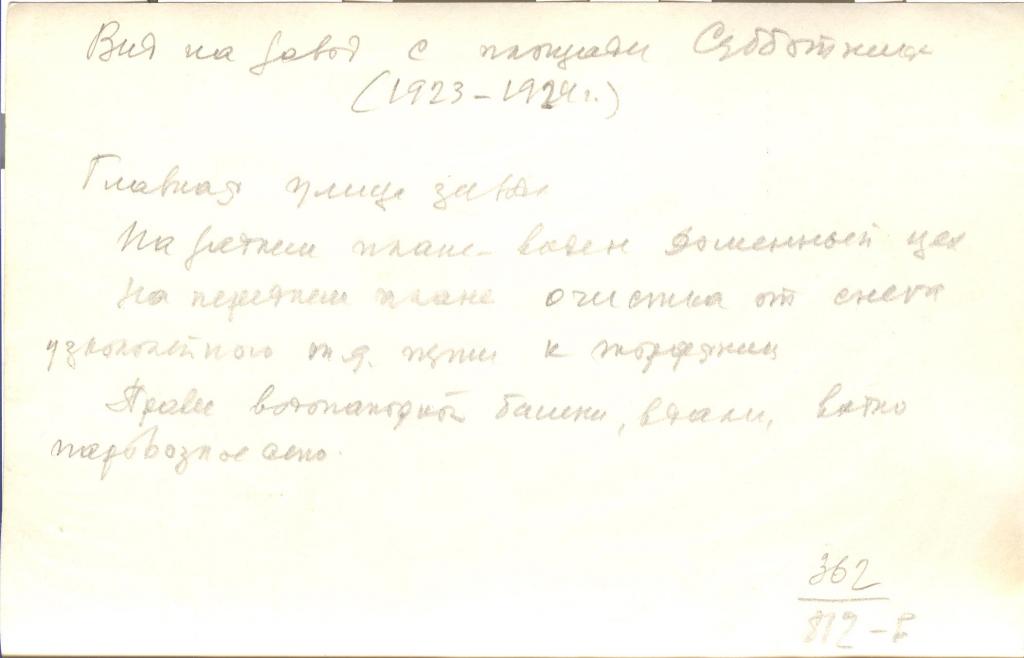 Вид на завод с площади Субботник
(1923-1924г.)
Главная улица завода
На заднем плане - виден доменный цех
На переднем плане очистка от снега
узкоколейного ж.д. пути к
Правее водонапорной башни, вдали, видно
паровозное депо.
362
812-Б